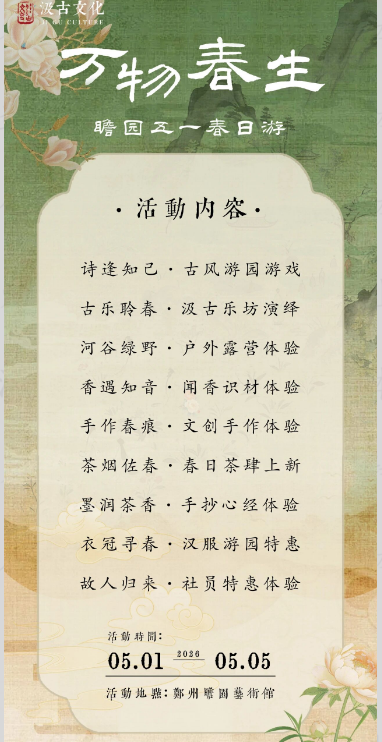 汲古文化
JI GU CULTURE
万物春生
瞻园五一春日游
·活動内容·
诗逢知己·古风游园游戏
古乐聆春·汲古乐坊演绎
河谷绿野·户外露营体验
香遇知音·闻香识材体验
手作春痕·文创手作体验
茶烟佐春·春日茶肆上新
墨润茶香·手抄心经体验
衣冠寻春·汉服游园特惠
故人归来·社员特惠体验
活動時間：
05.01 2026 05.05
活動地點：鄭州瞻園藝術館